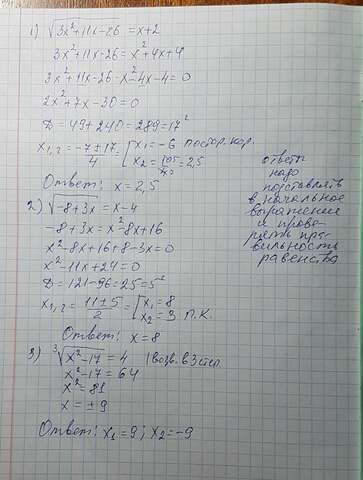 1) √3x²+11x-26 = x+2
3x²+11x-26 = x²+4x+4
3x²+11x-26-x²-4x-4=0
2x²+7x-30=0
D=49+240=289=17²
x₁,₂=-7±17/4=[x₁=-6 постор. кор.
x₂=10/4=2,5
Ответ: x=2,5
ответы
надо
подставлять
в начальное
выражение
и прове-
рять пра-
вильность
равенства
2) √-8+3x = x-4
-8+3x=x²-8x+16
x²-8x+16+8-3x=0
x²-11x+24=0
D=121-96=25=5²
x₁,₂=11±5/2=[x₁=8
x₂=3 п.к.
Ответ: x=8
3) ³√x²-17=4 |возв. в 3 степ.
x²-17=64
x²=81
x=±9
Ответ: x₁=9; x₂=-9